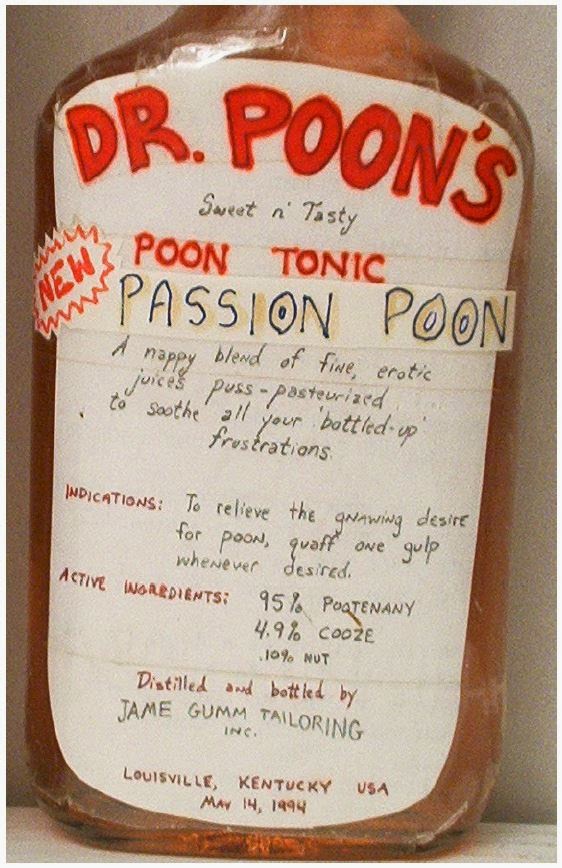 DR. POON'S
Sweet n' Tasty
POON TONIC
NEW
PASSION POON
A nappy blend of fine, erotic
juices puss-pasteurized
to soothe all your 'bottled-up'
frustrations.
INDICATIONS: To relieve the gnawing desire
for poon, quaff one gulp
whenever desired.
ACTIVE INGREDIENTS: 95% POOTENANY
4.9% COOZE
.10% NUT
Distilled and bottled by
JAME GUMM TAILORING
INC.
LOUISVILLE, KENTUCKY USA
MAY 14, 1994